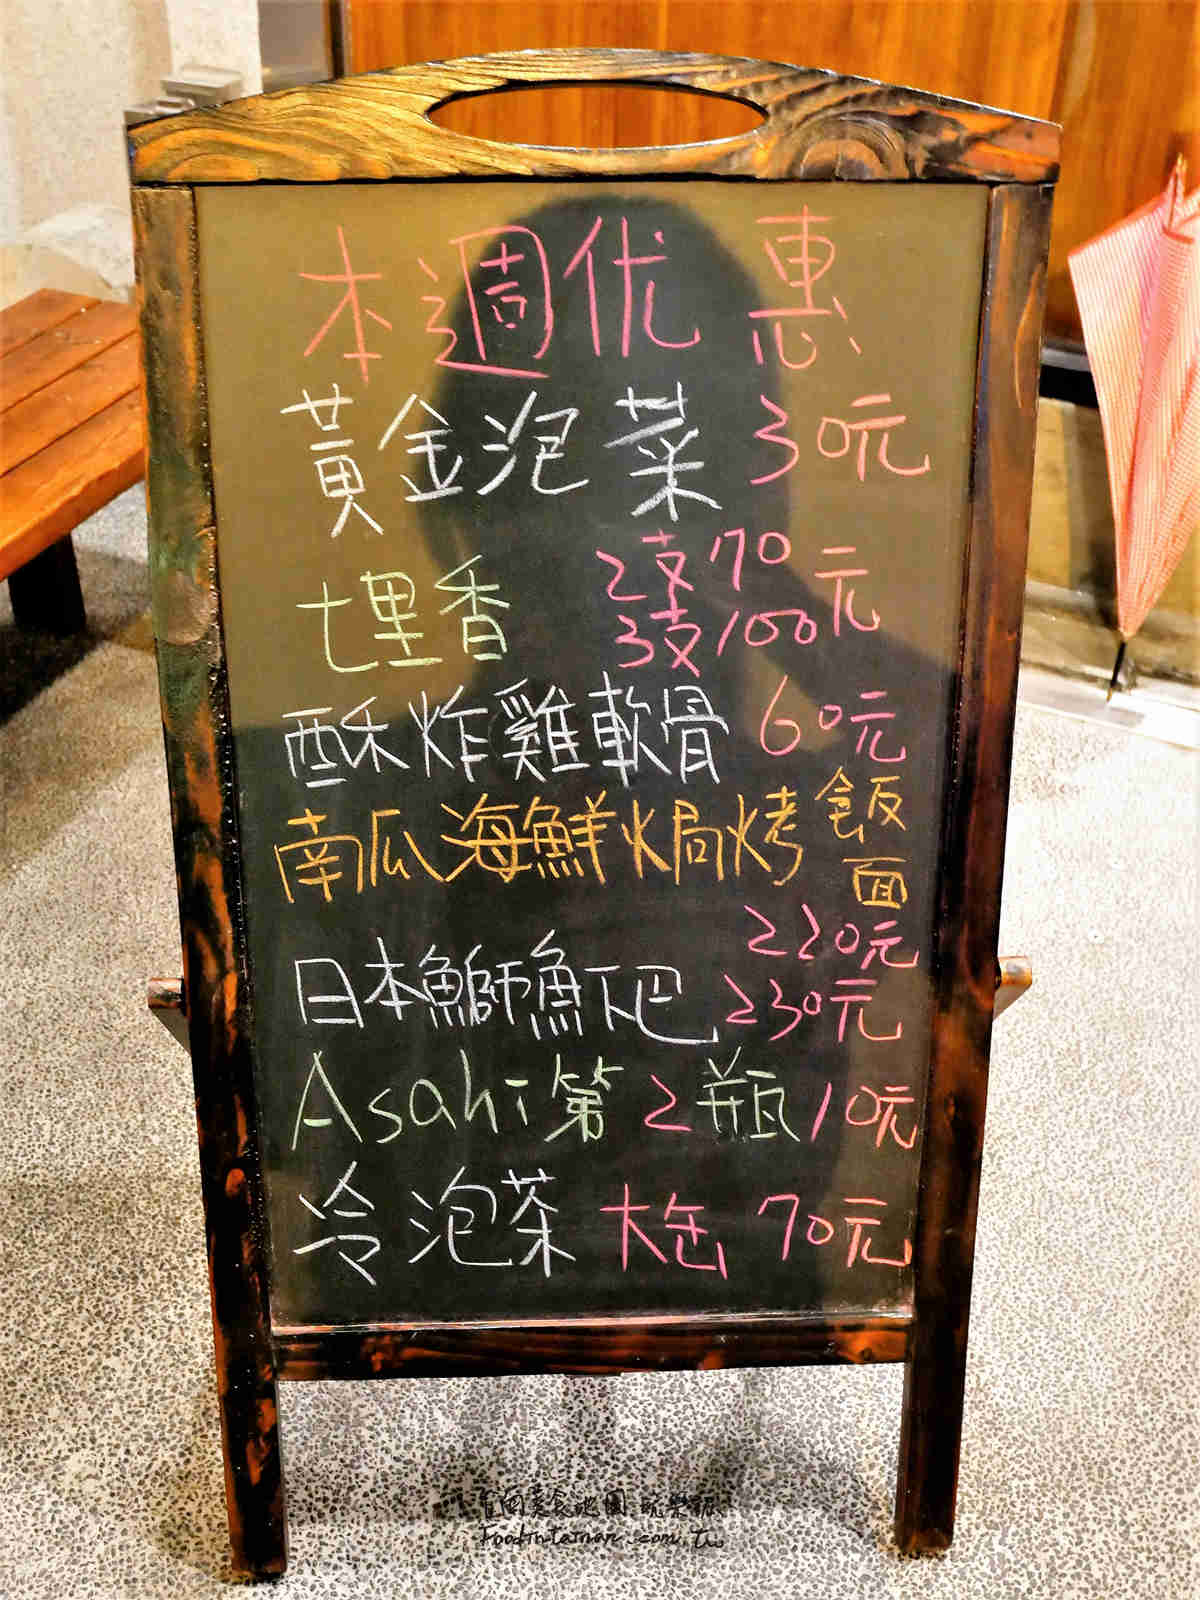 本週优惠
黃金泡菜 30元
七里香 2支70元
3支100
酥炸雞軟骨 60元
南瓜海鮮焗烤飯
面
220元
日本鰤魚下巴 230元
Asahi 第2瓶10元
冷泡茶 大缶 70元
台南美食地圖 玩樂誌
Foodintainan.com.tw